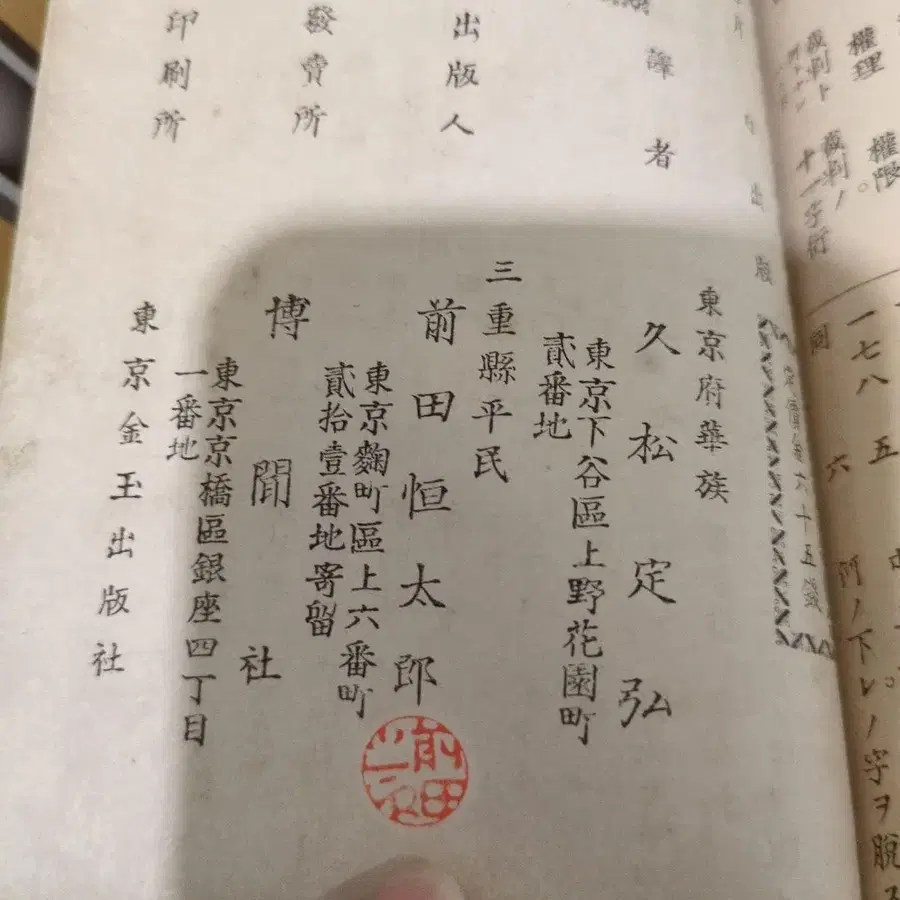 定價金六十五錢
譯者
東京府華族
久松定弘
東京下谷區上野花園町
貳番地
出版人
三重縣平民
前田恒太郎
東京麴町區上六番町
貳拾壹番地寄留
發賣所
博聞社
東京京橋區銀座四丁目
一番地
印刷所
東京金玉出版社
權理
權限
裁判ト
裁判ノ
十一字衍
一七八
五
六
下レノ字ヲ脫ス